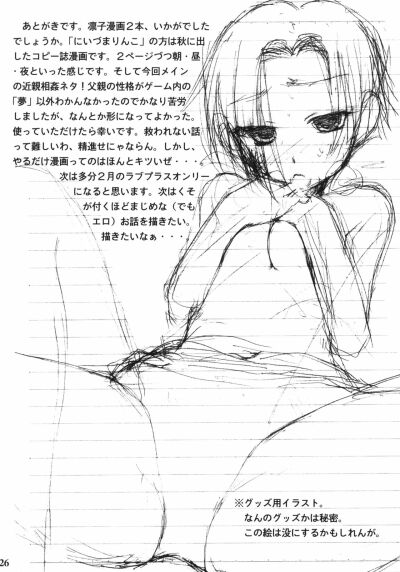 あとがきです。凛子漫画2本、いかがでした
でしょうか。「にいづまりんこ」の方は秋に出
したコピー誌漫画です。2ページづつ朝・昼
・夜といった感じです。そして今回メイン
の近親相姦ネタ！父親の性格がゲーム内の
「夢」以外わかんなかったのでかなり苦労
しましたが、なんとか形になってよかった。
使っていただけたら幸いです。救われない話
って難しいわ、精進せにゃならん。しかし、
やるだけ漫画ってのはほんとキツいぜ・・・。
次は多分2月のラブプラスオンリー
になると思います。次はくそ
が付くほどまじめな（でも
エロ）お話を描きたい。
描きたいなぁ・・・。
※グッズ用イラスト。
なんのグッズかは秘密。
この絵は没にするかもしれんが。
26